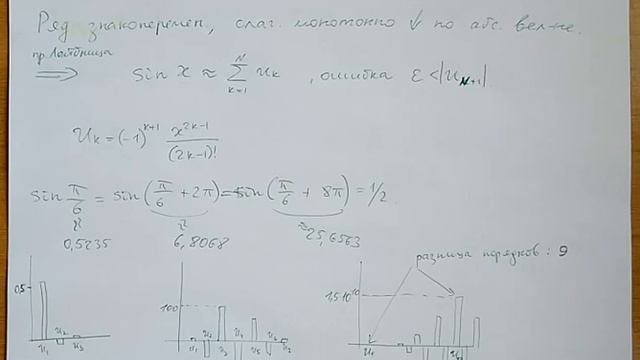 Ряд знакоперемен, слаг. монотонно ↓ по абс. вел-не.
пр. Лейбница
⟹ sin x ≈ N ∑ k=1 u_k , ошибка ε < |u_{N+1}|
u_k = (-1)^{k+1} x^{2k-1} / (2k-1)!
sin π/6 = sin(π/6 + 2π) = sin(π/6 + 8π) = 1/2
≈ 0,5235 ≈ 6,8068 ≈ 25,6563
разница порядков: 9
0.5 u₁ u₂ u₃
100 u₁ u₂ u₃ u₄ u₅ u₆
1,5·10¹⁰ u₁